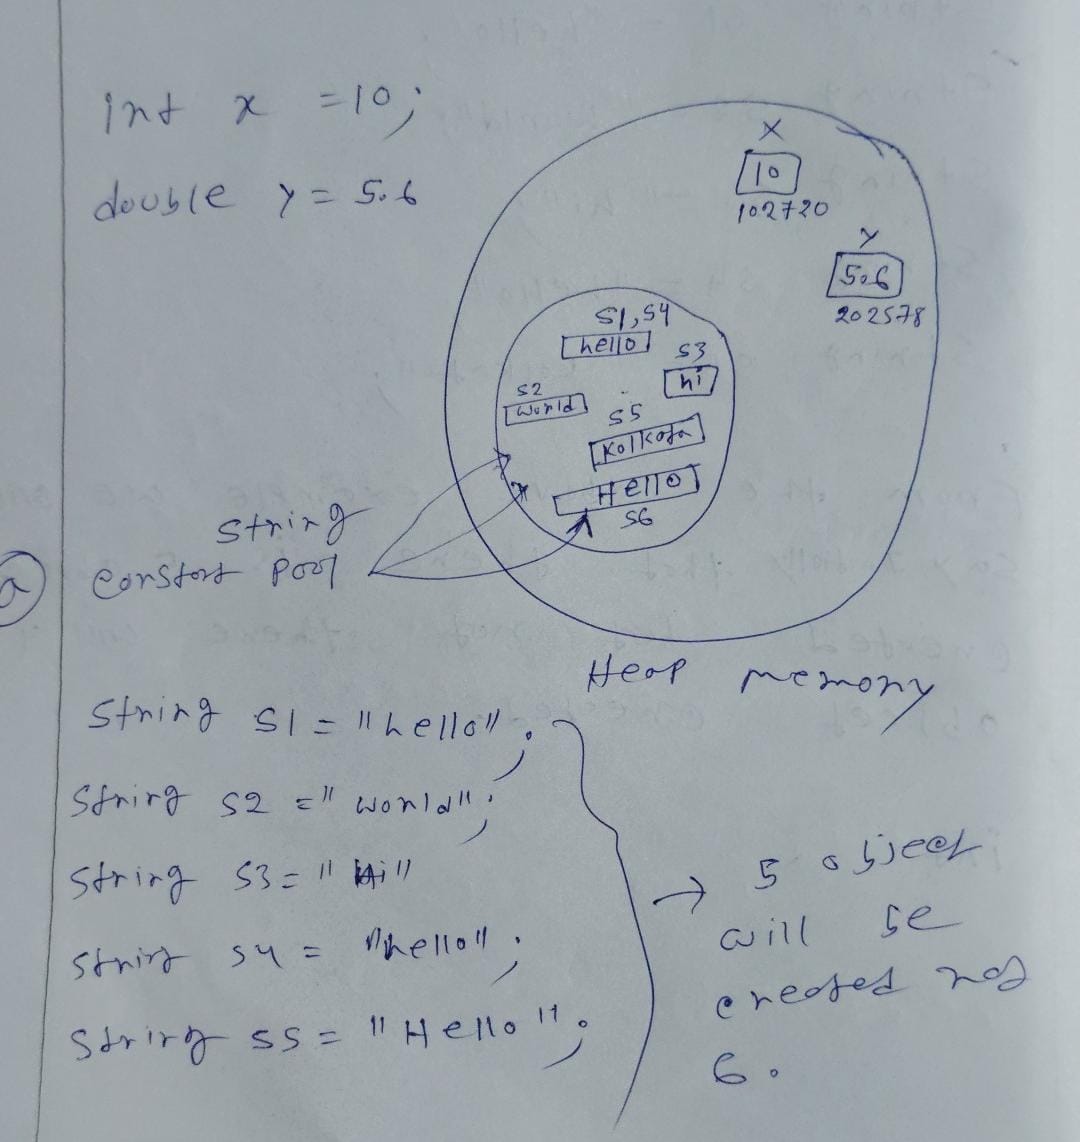 int x = 10;
double y = 5.6
X
10
102720
Y
5.6
202578
S1, S4
hello
S3
hi
S2
World
S5
Kolkata
Hello
S6
String
constant pool
a
Heap memory
String S1 = "hello";
String S2 = "world";
String S3 = "Hi"
String S4 = "hello";
String S5 = "Hello";
→ 5 object
will be
created not
6.